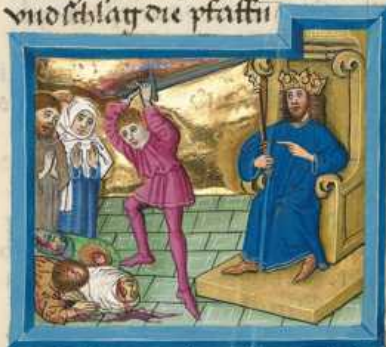 vnd schlag die pfaffn